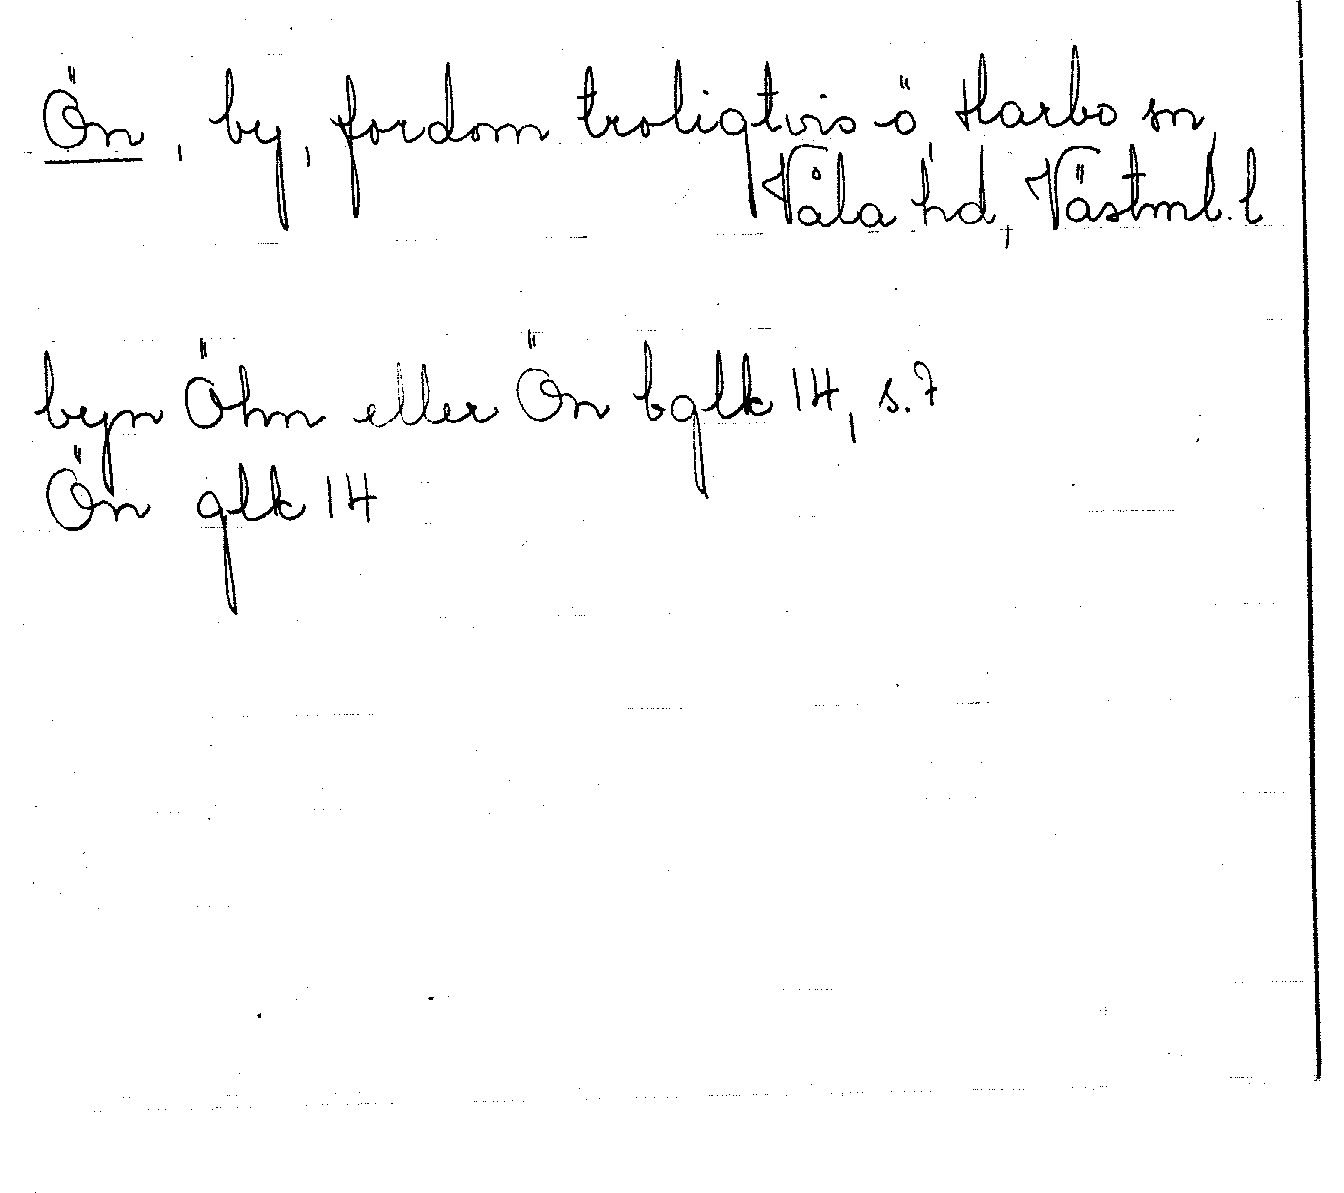 Ön, by, fordom troligtvis ö, Harbo sn,
Våla hd, Västml. l
byn Öhn eller Ön bglk 14, s. 7
Ön glk 14